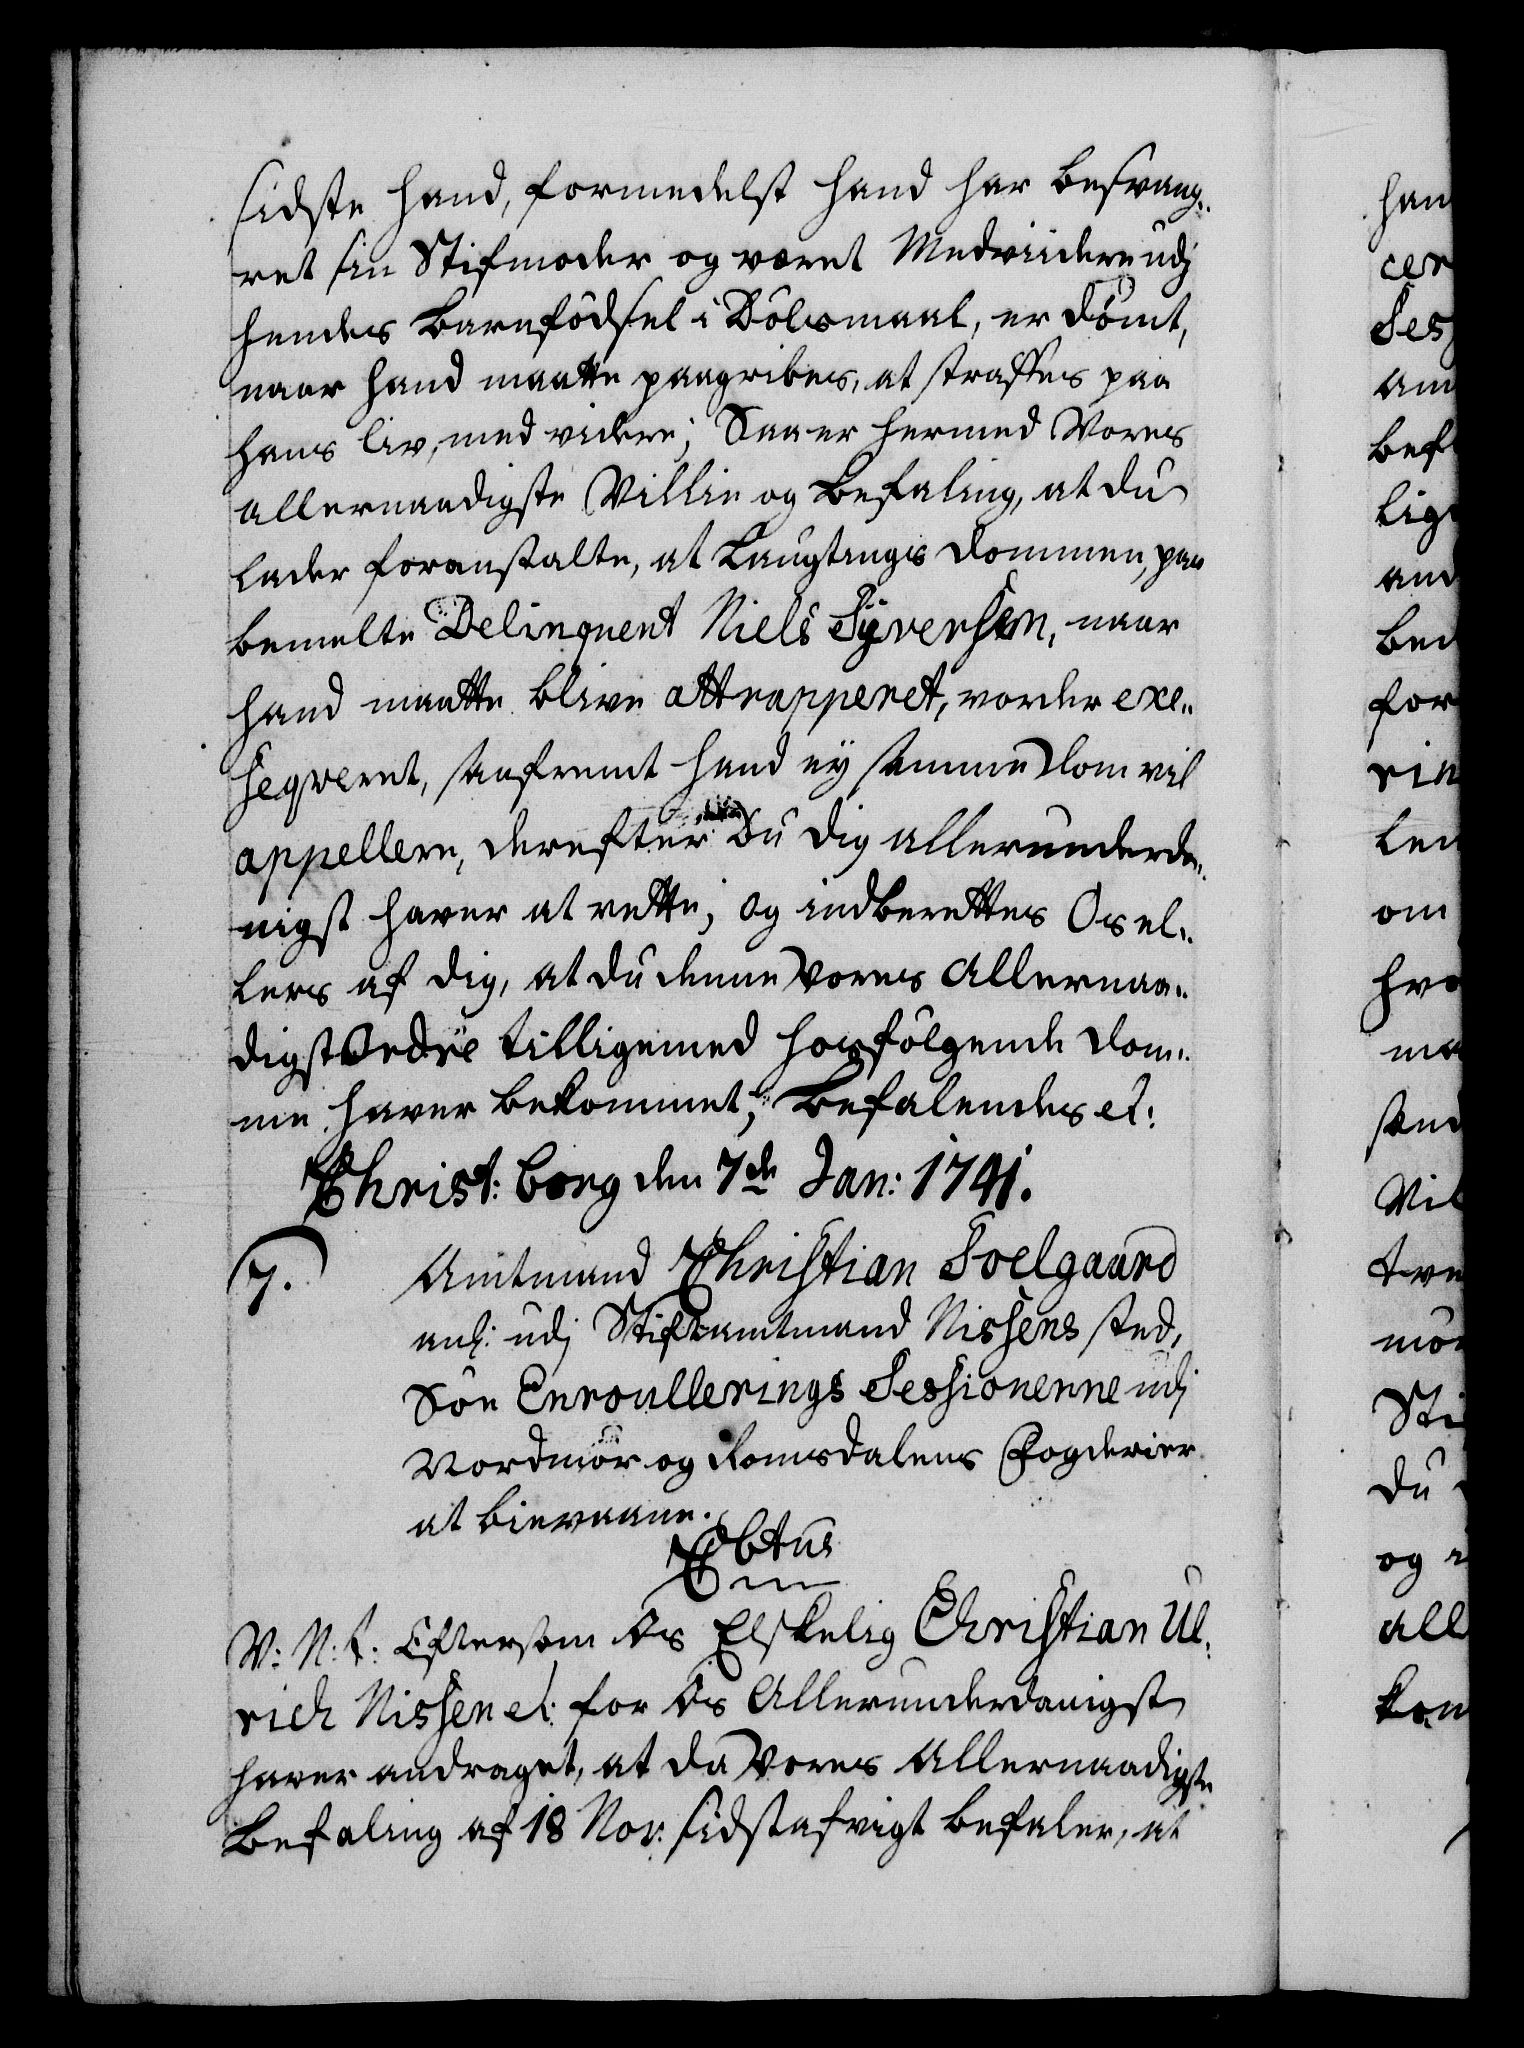 sidste hand, formedelst hand har besvang„
ret sin Stifmoder og været Medviidere udj
hendes Barnefødsel i Dølsmaal, er dømt,
naar hand maatte paagribes, at straffes paa
hans liv, med videre; Saa er hermed Vores
allernaadigste Villie og Befaling, at du
lader foranstalte, at Laugtings dommen, paa
bemelte Delinqvent Niels Syversen, naar
hand maatte blive attrapperet, vorder exe„
seqveret, saafremt hand ey samme Dom vil
appellere, derefter Du dig allerunderda„
nigst haver at rette; og indberettes Os el„
lers af dig, at du denne Vores Allernaa„
digst Ordre tilligemed hosfølgende Dom„
me haver bekommet; Befalendes etc:
Christ: borg den 7de Jan: 1741.
7.
Amtmand Christian Soelgaard
anl: udj Stiftamtmand Nissens sted,
Søe Enroullerings Sessionerne udj
Nordmør og Romsdalens Fogderier
at bievaane.
C6tus
V: N: t: Eftersom Os Elskelig Christian Ul„
rich Nissen etc: for Os Allerunderdanigst
haver andraget, at da Vores Allernaadigste
Befaling af 18 Nov: sidstafvigt befaler, at
han
cer
Ses
am
bef
lig
and
ben
for
rin
len
om
hvo
ma
sand
Vil
tve
mør
Sti
du
og
all
kom